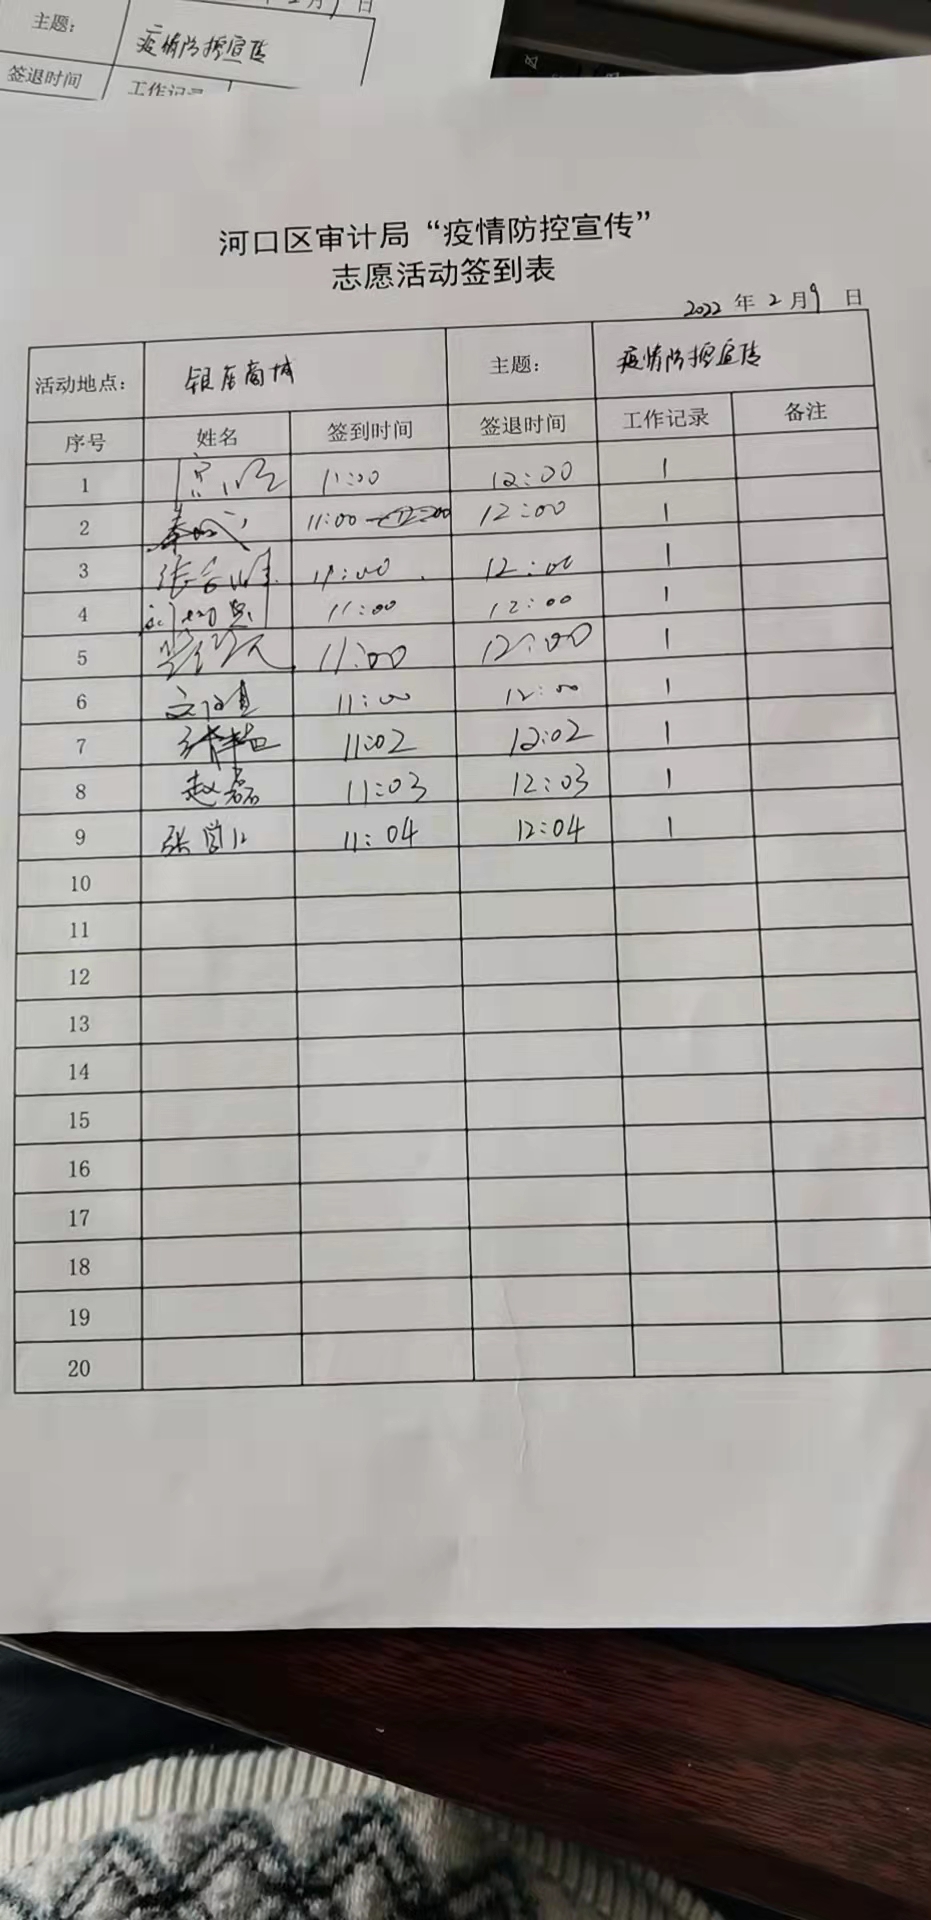 月 日
主题： 疫情防控宣传
签退时间 工作记录
河口区审计局“疫情防控宣传”
志愿活动签到表
2022 年 2 月 9 日
活动地点： 银座商城 主题： 疫情防控宣传
序号 姓名 签到时间 签退时间 工作记录 备注
1 11:00 12:00 1
2 11:00 12:00 1
3 11:00 12:00 1
4 11:00 12:00 1
5 11:00 12:00 1
6 11:00 12:00 1
7 11:02 12:02 1
8 赵磊 11:03 12:03 1
9 11:04 12:04 1
10
11
12
13
14
15
16
17
18
19
20